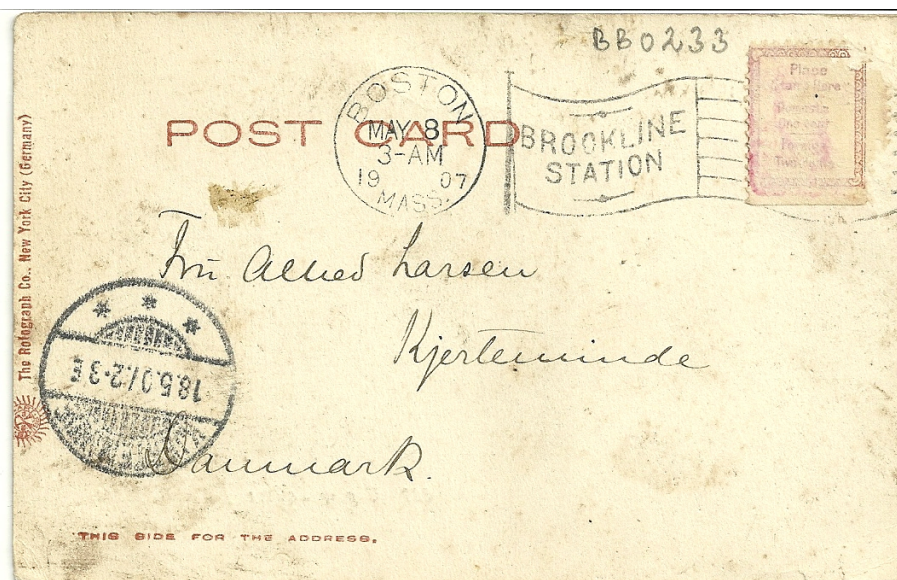 BB0233
POST CARD
BOSTON
MAY 8
3-AM
19 07
MASS.
BROOKLINE
STATION
Place
Stamp Here
Domestic
One cent
Foreign
Two cents
The Rotograph Co., New York City (Germany)
Fru Alfred Larsen
Kjerteminde
Danmark.
18.5.07.2-3 E
THIS SIDE FOR THE ADDRESS.